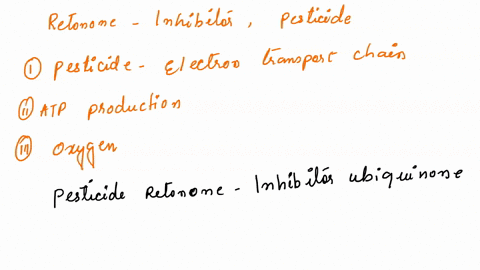 Retonone - Inhibitos, pesticide
(i) pesticide - Electron transport chain
(ii) ATP production
(iii) oxygen
Pesticide Retonone - Inhibitos ubiquinone